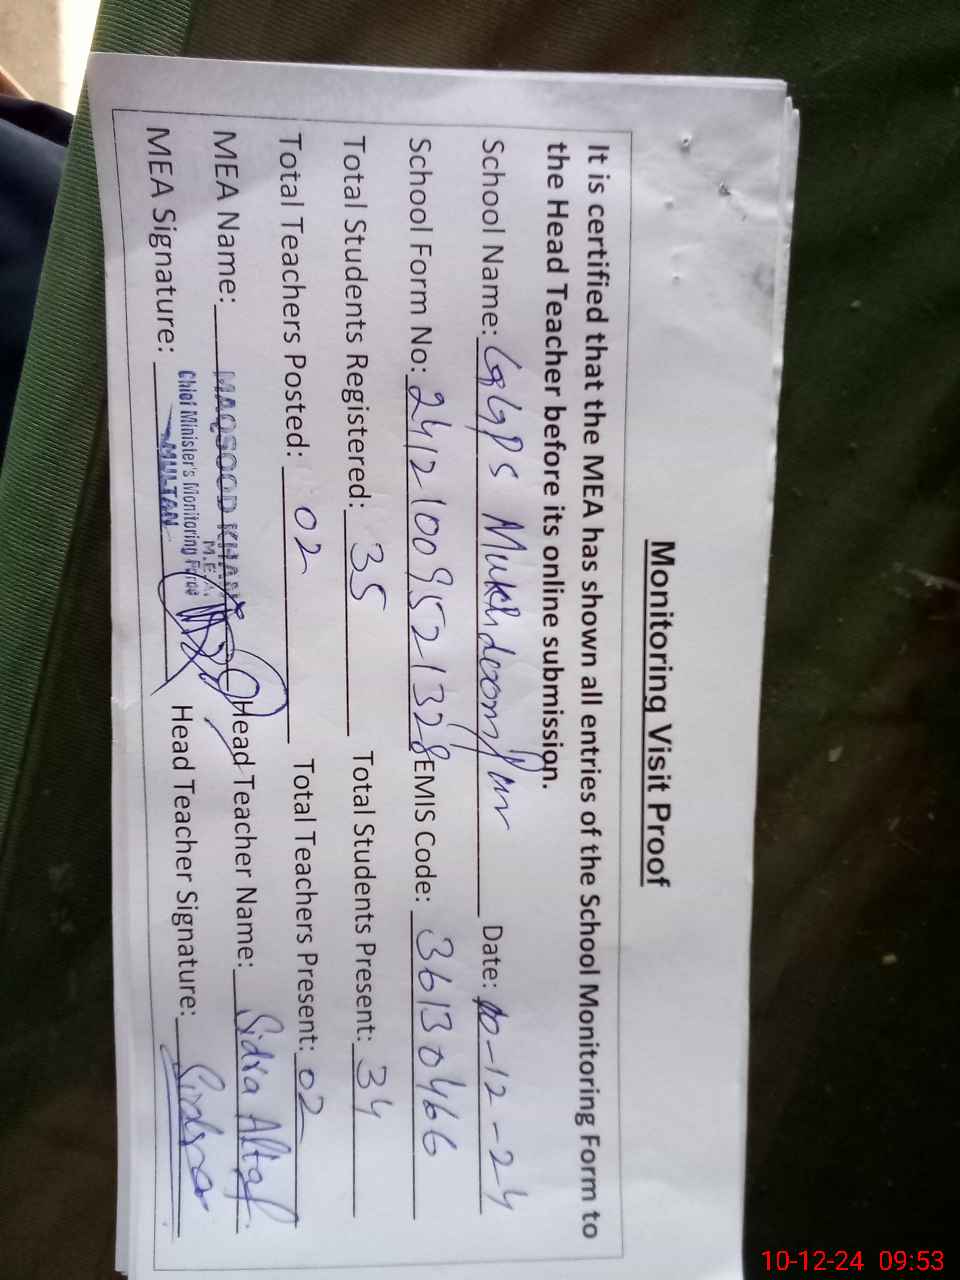 Monitoring Visit Proof
It is certified that the MEA has shown all entries of the School Monitoring Form to
the Head Teacher before its online submission.
School Name: GGPS Mukhdoom Pur Date: 10-12-24
School Form No: 24121009521328 EMIS Code: 36130466
Total Students Registered: 35 Total Students Present: 34
Total Teachers Posted: 02 Total Teachers Present: 02
MEA Name: MAQSOOD KHAN Head Teacher Name: Sidra Altaf
M.E.A
Chief Minister's Monitoring Force
MEA Signature: MULTAN Head Teacher Signature: Sidra
10-12-24 09:53